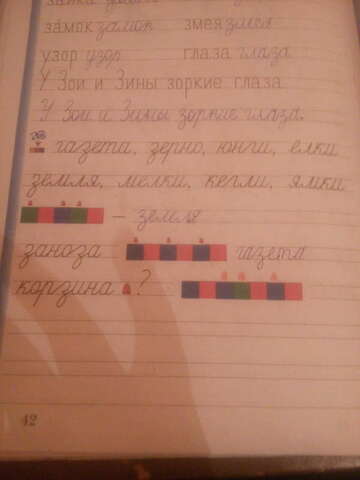 замок замок змея змея
узор узор глаза глаза
У Зои и Зины зоркие глаза.
У Зои и Зины зоркие глаза.
газета, зерно, юнги, елки
земля, мелки, кегли, ямки
– земля
заноза газета
корзина ?
42